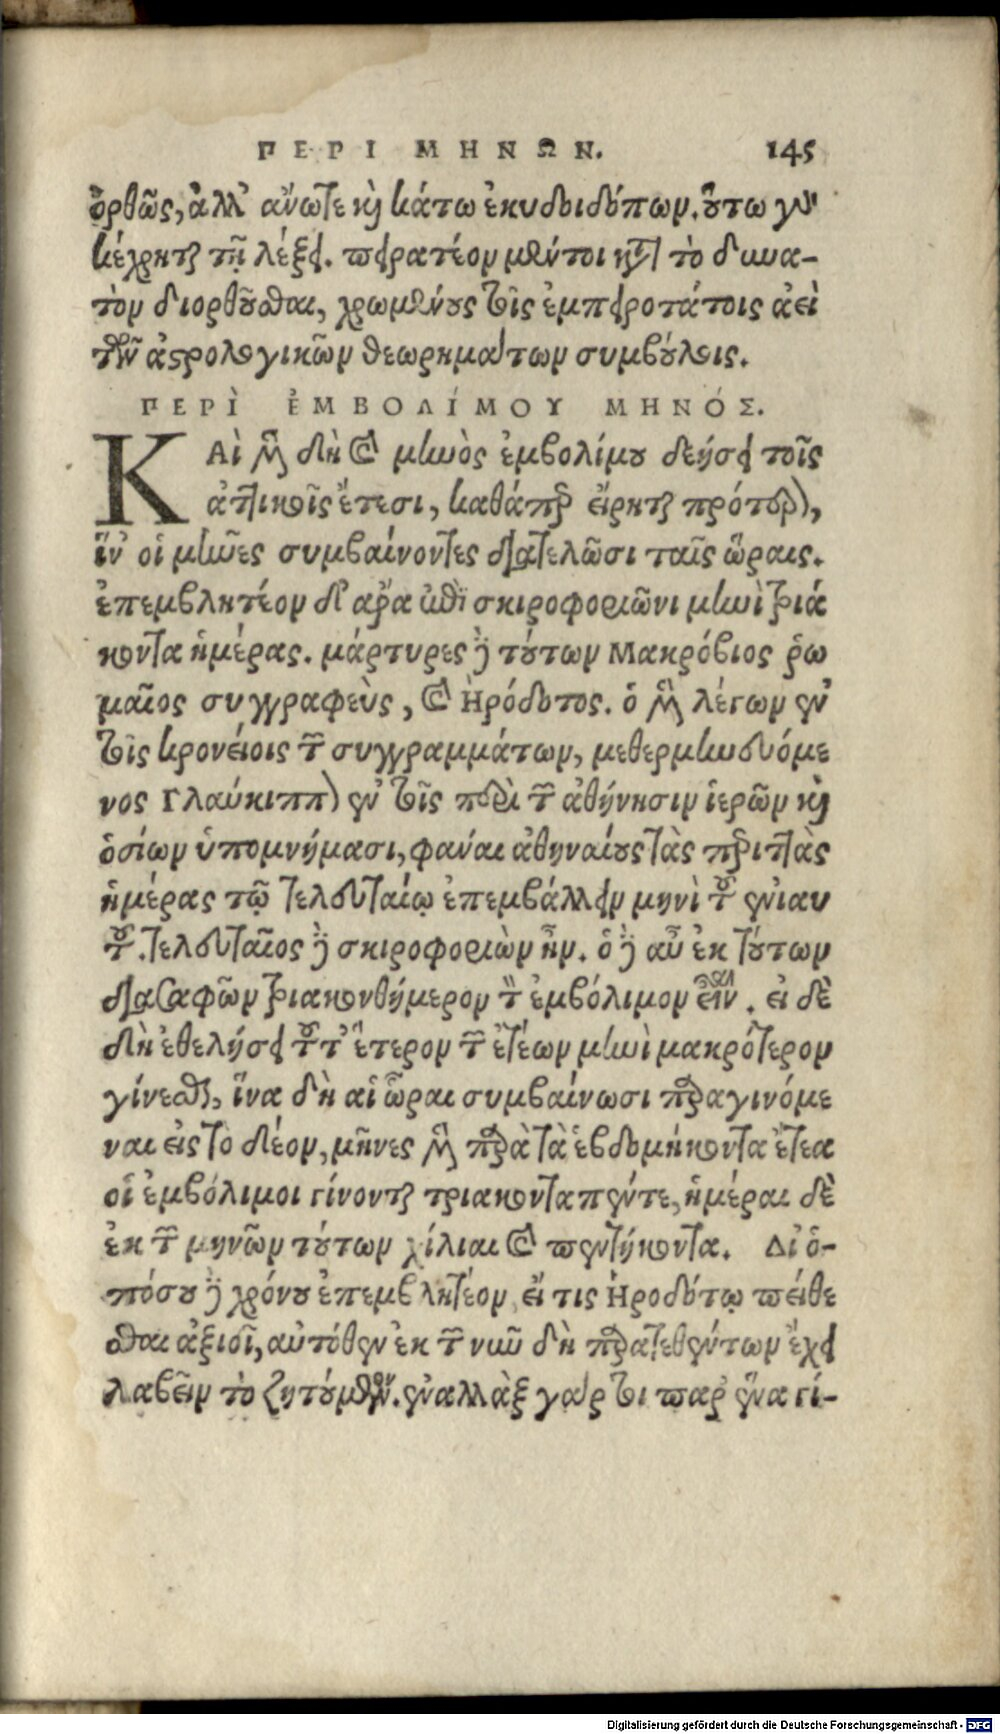 ΠΕΡΙ ΜΗΝΩΝ. 145
ὀρθῶς, ἀλλ' ἄνωτε καὶ κάτω ἐκυδοιδόπων. οὕτω γὰρ
κέχρηται τῇ λέξει. πειρατέον μέντοι κατὰ τὸ δυνα-
τὸν διορθοῦσθαι, χρωμένους τοῖς ἐμπειροτάτοις ἀεὶ
τῶν ἀστρολογικῶν θεωρημάτων συμβούλοις.
ΠΕΡῚ ἘΜΒΟΛΊΜΟΥ ΜΗΝΌΣ.
ΚΑὶ μὴν δὴ καὶ μηνὸς ἐμβολίμου δεήσει τοῖς
ἀττικοῖς ἔτεσι, καθάπερ εἴρηται πρότερον,
ἵν' οἱ μῆνες συμβαίνοντες διατελῶσι ταῖς ὥραις.
ἐπεμβλητέον δ' ἄρα ἐπὶ σκιροφοριῶνι μηνὶ τριά
κοντα ἡμέρας. μάρτυρες δὲ τούτων Μακρόβιος ῥω
μαῖος συγγραφεὺς, καὶ Ἡρόδοτος. ὁ μὲν λέγων ἐν
τοῖς κρονείοις τῶν συγγραμμάτων, μεθερμηνευόμε
νος Γλαύκιππον ἐν τοῖς περὶ τῶν ἀθήνησιν ἱερῶν καὶ
ὁσίων ὑπομνήμασι, φάναι ἀθηναίους τὰς περιττὰς
ἡμέρας τῷ τελευταίῳ ἐπεμβάλλειν μηνὶ τοῦ ἐνιαυ
τοῦ. τελευταῖος δὲ σκιροφοριὼν ἦν. ὁ δὲ αὖ ἐκ τούτων
διασαφῶν τριακονθήμερον τὸν ἐμβόλιμον εἶναι. εἰ δὲ
δὴ ἐθελήσει τοὔτερον τῶν ἐτέων μηνὶ μακρότερον
γίνεσθαι, ἵνα δὴ αἱ ὧραι συμβαίνωσι παραγινόμε
ναι εἰς τὸ δέον, μῆνες μὲν παρὰ τὰ ἑβδομήκοντα ἔτεα
οἱ ἐμβόλιμοι γίνονται τριακονταπέντε, ἡμέραι δὲ
ἐκ τῶν μηνῶν τούτων χίλιαι καὶ πεντήκοντα. Δι' ὁ-
πόσου δὲ χρόνου ἐπεμβλητέον, εἴ τις Ἡροδότῳ πείθε
σθαι ἀξιοῖ, αὐτόθεν ἐκ τῶν νῦν δὴ παρατεθέντων ἔχει
λαβεῖν τὸ ζητούμενον. ἐναλλὰξ γάρ τοι παρ' ἕνα γί-
Digitalisierung gefördert durch die Deutsche Forschungsgemeinschaft - DFG